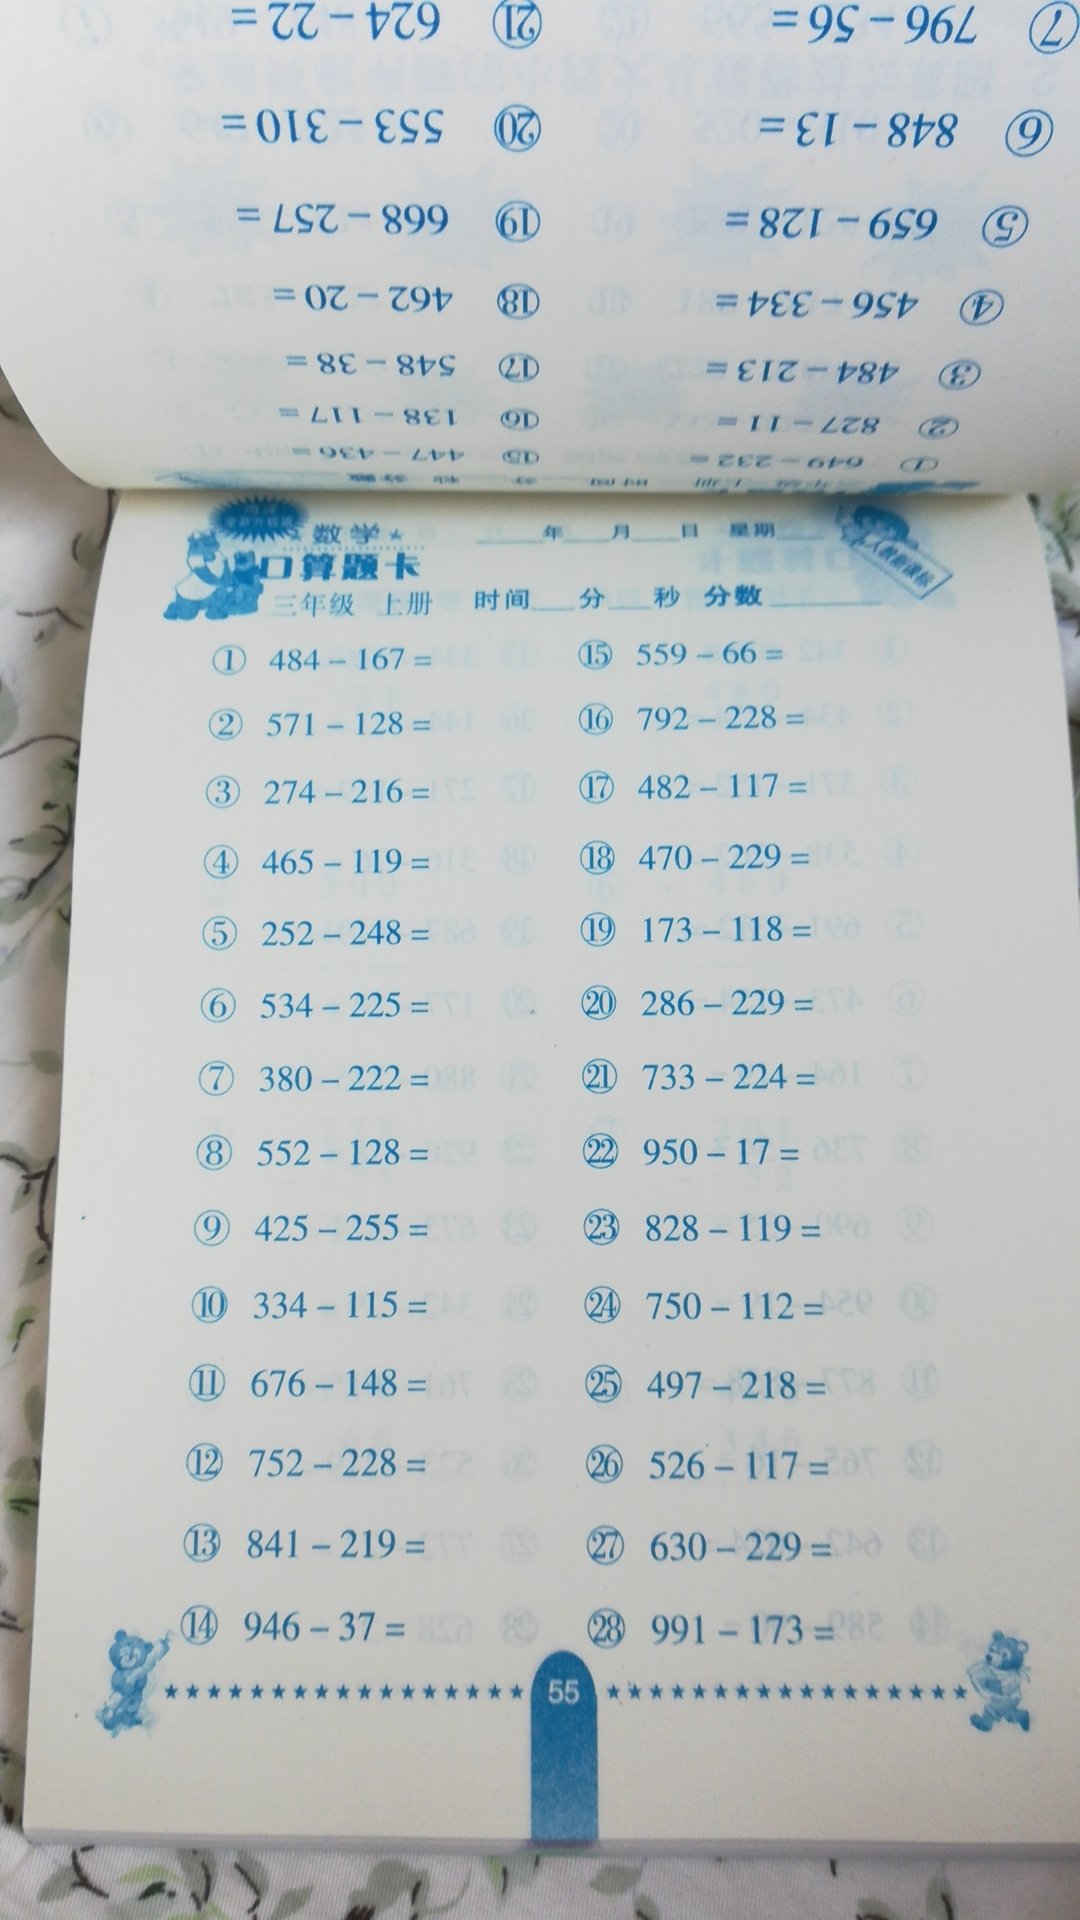 ⑦ 796 − 56 =
㉑ 624 − 22 =
⑥ 848 − 13 =
⑳ 553 − 310 =
⑤ 659 − 128 =
⑲ 668 − 257 =
④ 456 − 334 =
⑱ 462 − 20 =
③ 484 − 213 =
⑰ 548 − 38 =
② 827 − 11 =
⑯ 138 − 117 =
① 649 − 232 =
⑮ 447 − 436 =
数学 ____年____月____日 星期
人教新课标
口算题卡
三年级 上册 时间___分___秒 分数______
① 484 − 167 = ⑮ 559 − 66 =
② 571 − 128 = ⑯ 792 − 228 =
③ 274 − 216 = ⑰ 482 − 117 =
④ 465 − 119 = ⑱ 470 − 229 =
⑤ 252 − 248 = ⑲ 173 − 118 =
⑥ 534 − 225 = ⑳ 286 − 229 =
⑦ 380 − 222 = ㉑ 733 − 224 =
⑧ 552 − 128 = ㉒ 950 − 17 =
⑨ 425 − 255 = ㉓ 828 − 119 =
⑩ 334 − 115 = ㉔ 750 − 112 =
⑪ 676 − 148 = ㉕ 497 − 218 =
⑫ 752 − 228 = ㉖ 526 − 117 =
⑬ 841 − 219 = ㉗ 630 − 229 =
⑭ 946 − 37 = ㉘ 991 − 173 =
55